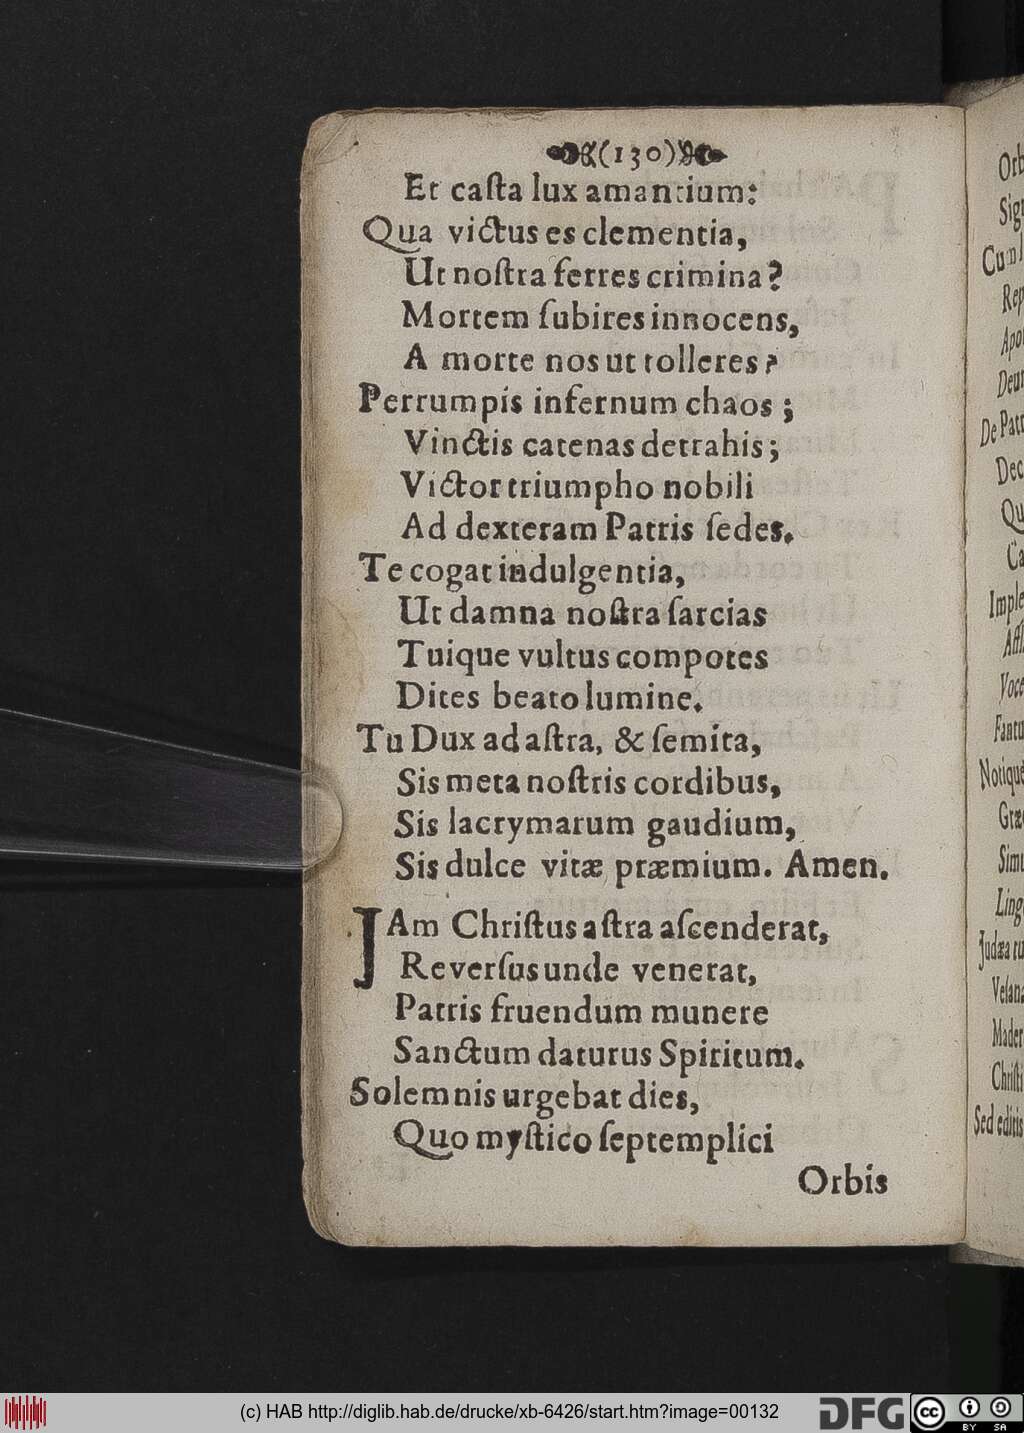 (130)
Et caſta lux amantium:
Qua victus es clementia,
Ut noſtra ferres crimina?
Mortem ſubires innocens,
A morte nos ut tolleres?
Perrumpis infernum chaos;
Vinctis catenas detrahis;
Victor triumpho nobili
Ad dexteram Patris ſedes.
Te cogat indulgentia,
Ut damna noſtra ſarcias
Tuique vultus compotes
Dites beato lumine.
Tu Dux ad aſtra, & ſemita,
Sis meta noſtris cordibus,
Sis lacrymarum gaudium,
Sis dulce vitæ præmium. Amen.
JAm Chriſtus aſtra aſcenderat,
Reverſus unde venerat,
Patris fruendum munere
Sanctum daturus Spiritum.
Solemnis urgebat dies,
Quo myſtico ſeptemplici
Orbis
Orb
Sig
Cum
Rep
Apo
Deum
De Patr
Dec
Qu
Ca
Imple
Affl
Voce
Fantu
Notique
Græc
Simu
Ling
Judæa tu
Veſana
Mader
Chriſti
Sed editis
(c) HAB http://diglib.hab.de/drucke/xb-6426/start.htm?image=00132
DFG
cc
BY SA